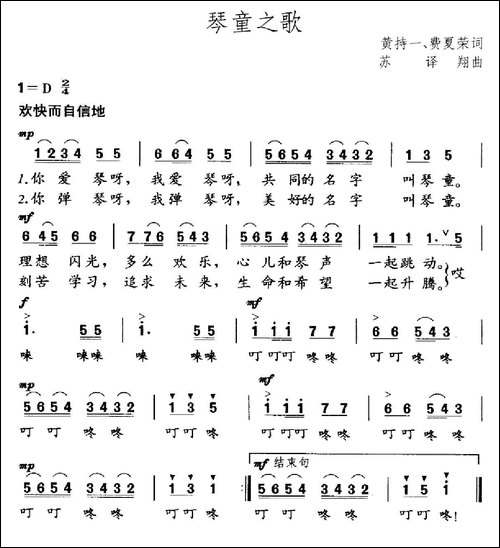 琴童之歌
黄持一、费夏荣词
苏 译 翔曲
1=D 2/4
欢快而自信地
mp
1234 55 | 6 64 55 | 5654 3432 | 1 3 5
1.你 爱 琴呀, 我爱 琴呀, 共 同的 名字 叫琴童。
2.你 弹 琴呀, 我弹 琴呀, 美 好的 名字 叫琴童。
mf
645 66 | 776 545 | 5654 3432 | 111 1. V 5
理想 闪光, 多么 欢乐, 心 儿和 琴声 一起跳动。
哎
刻苦 学习, 追求 未来, 生 命和 希望 一起升腾。
f mf
i. 55 | i. 55 | i ii 77 | 66 543
唻 唻唻 唻 唻唻 叮 叮叮 咚咚 叮叮 咚咚
mp mf
5654 3432 | 1 3 5 | i ii 77 | 66 543
叮 叮 咚咚 叮叮 咚 叮 叮叮 咚咚 叮叮 咚咚
mp mf 结束句
5654 3432 | 1 3 1 :‖ 5654 3432 | 1 5 i ‖
叮 叮 咚咚 叮叮 咚 叮 叮 咚咚 叮叮 咚!